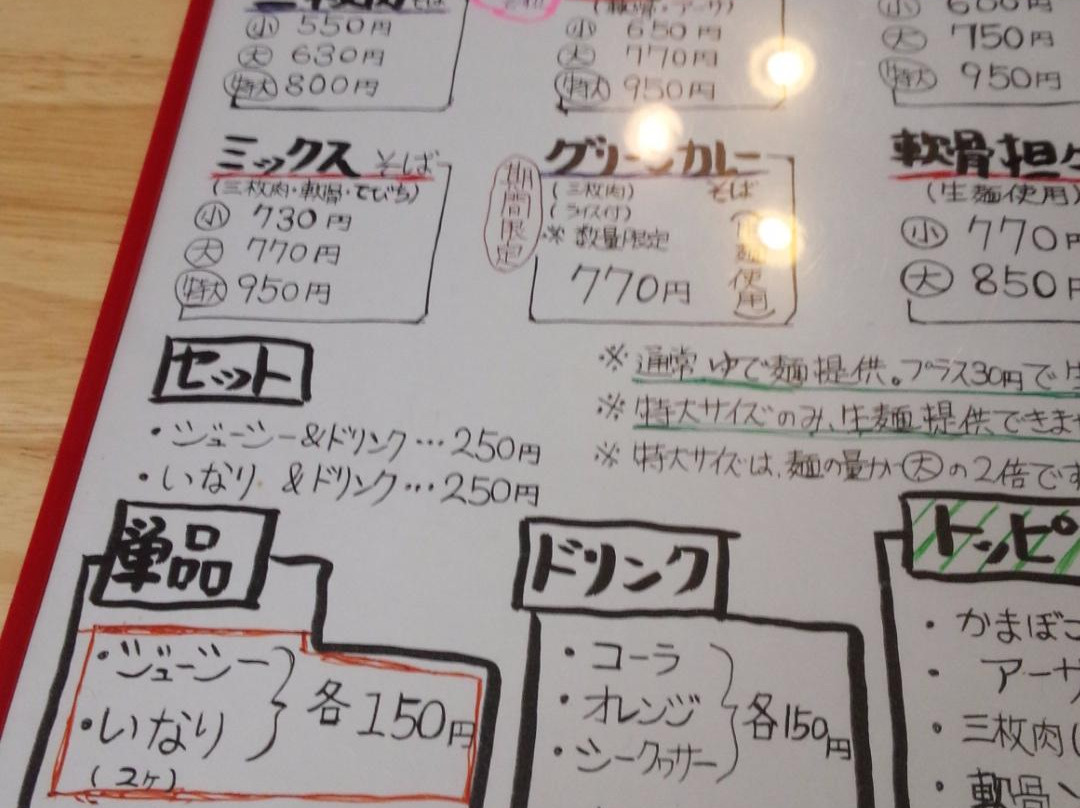 三枚肉そば
小 550円
大 630円
特大 800円
(軟骨・アーサ)
小 650円
大 770円
特大 950円
小
大 750円
特大 950円
ミックスそば
(三枚肉・軟骨・てびち)
小 730円
大 770円
特大 950円
期間限定
グリーンカレーそば
(三枚肉)
(ライス付)
※数量限定
770円
麺使用)
軟骨担
(生麺使用)
小 770円
大 850円
セット
・ジューシー&ドリンク…250円
・いなり &ドリンク…250円
※通常ゆで麺提供。プラス30円で生
※特大サイズのみ、生麺提供できませ
※特大サイズは、麺の量が大の2倍です
単品
・ジューシー
・いなり
(2ケ)
各150円
ドリンク
・コーラ
・オレンジ
・シークヮサー
各150円
トッピ
・かまぼこ
・アーサ
・三枚肉(
・軟骨